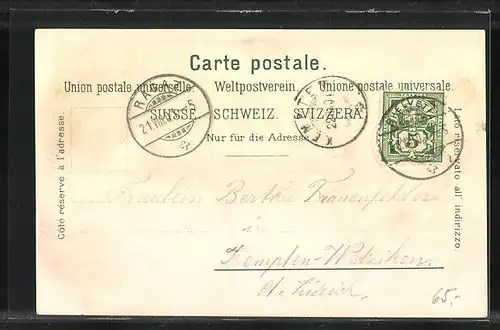 Carte postale.
Union postale universelle. Weltpostverein. Unione postale universale.
SUISSE. SCHWEIZ. SVIZZERA.
Nur für die Adresse.
Côté réservé à l'adresse.
Lato riservato all' indirizzo.
RAGAZ
21. VIII.
KEMPTEN
HELVETIA
5
Fräulein Bertha Frauenfelder
in
Kempten-Wetzikon.
Ct. Zürich.
65.-